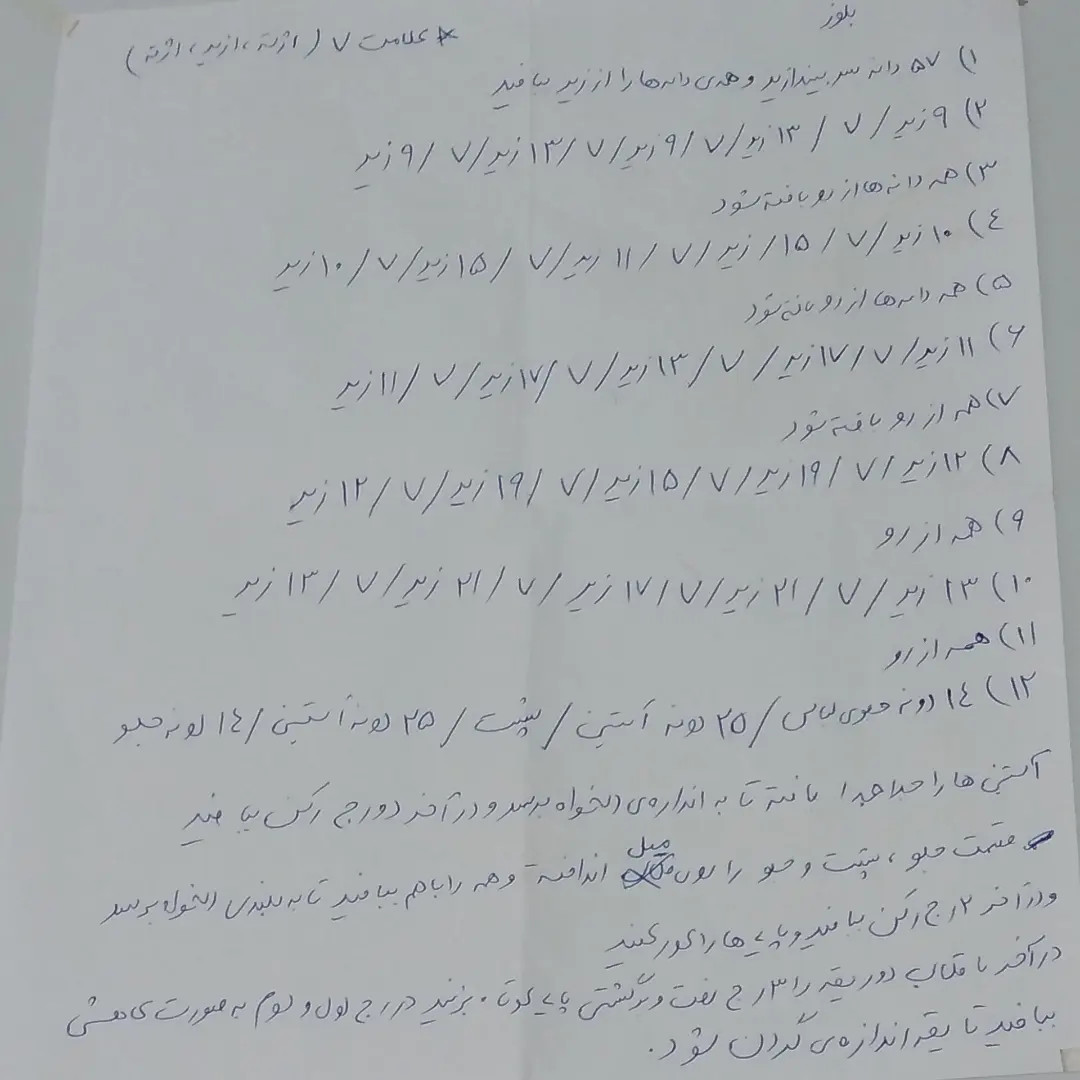 بلوز
* علامت ٧ ( اژته ، ازیر ، اژته )
١) ۵٧ دانه سر بیندازید و همه‌ی دانه‌ها را از زیر ببافید
٢) ٩ زیر / ٧ / ١٣ زیر / ٧ / ٩ زیر / ٧ / ١٣ زیر / ٧ / ٩ زیر
٣) همه دانه ها از رو بافته شود
٤) ١٠ زیر / ٧ / ١۵ / زیر / ٧ / ١١ زیر / ٧ / ١۵ زیر / ٧ / ١٠ زیر
۵) همه دانه‌ها از رو بافته شود
۶) ١١ زیر / ٧ / ١٧ زیر / ٧ / ١٣ زیر / ٧ / ١٧ زیر / ٧ / ١١ زیر
٧) همه از رو بافته شود
٨) ١٢ زیر / ٧ / ١٩ زیر / ٧ / ١۵ زیر / ٧ / ١٩ زیر / ٧ / ١٢ زیر
٩) همه از رو
١٠) ١٣ زیر / ٧ / ٢١ زیر / ٧ / ١٧ زیر / ٧ / ٢١ زیر / ٧ / ١٣ زیر
١١) همه از رو
١٢) ١٤ دونه جلوی لباس / ٢۵ دونه آستین / پشت / ٢۵ دونه آستین / ١٤ دونه جلو
آستین ها را جدا جدا بافته تا به اندازه‌ی دلخواه برسد و در آخر دو رج رکن ببافید
قسمت جلو ، پشت و جلو را روی میل انداخته و همه را باهم ببافید تا به بلندی دلخواه برسد
و در آخر ٢ رج رکن ببافید و پایه ها را کور کنید
در آخر با قلاب دور یقه را ٣ رج رفت و برگشتی پایه کوتاه بزنید در رج اول و دوم به صورت کاهشی
ببافید تا یقه اندازه‌ی گردن شود.